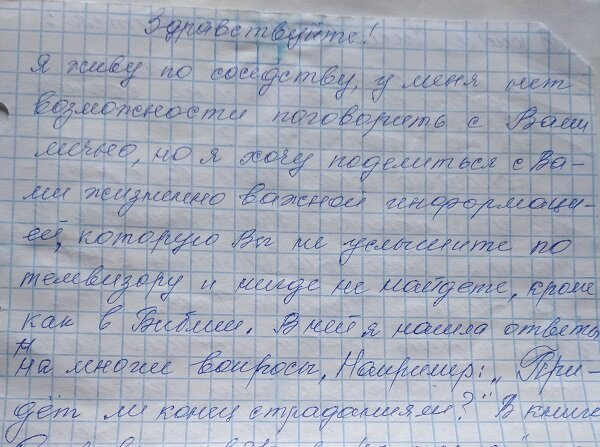 Здравствуйте!
Я живу по соседству, у меня нет
возможности поговорить с Вами
лично, но я хочу поделиться с Ва-
ми жизненно важной информаци-
ей, которую Вы не услышите по
телевизору и нигде не найдете, кроме
как в Библии. В ней я нашла ответы
На многие вопросы, Например: „При-
дёт ли конец страданиям?" В книге